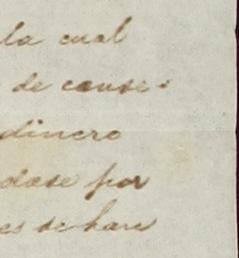 la cual
de cause-
dinero
dose por
es se hare